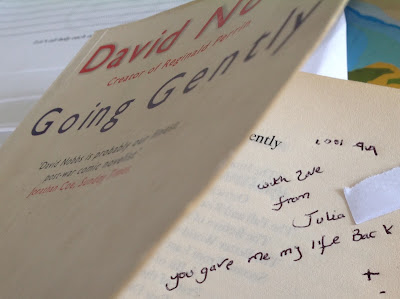 David No
Creator of Reginald Perrin
Going Gently
'David Nobbs is probably our finest
post-war comic novelist'
Jonathan Coe, Sunday Times
ently
with love
from
Julia
you gave me my life Back
+
-